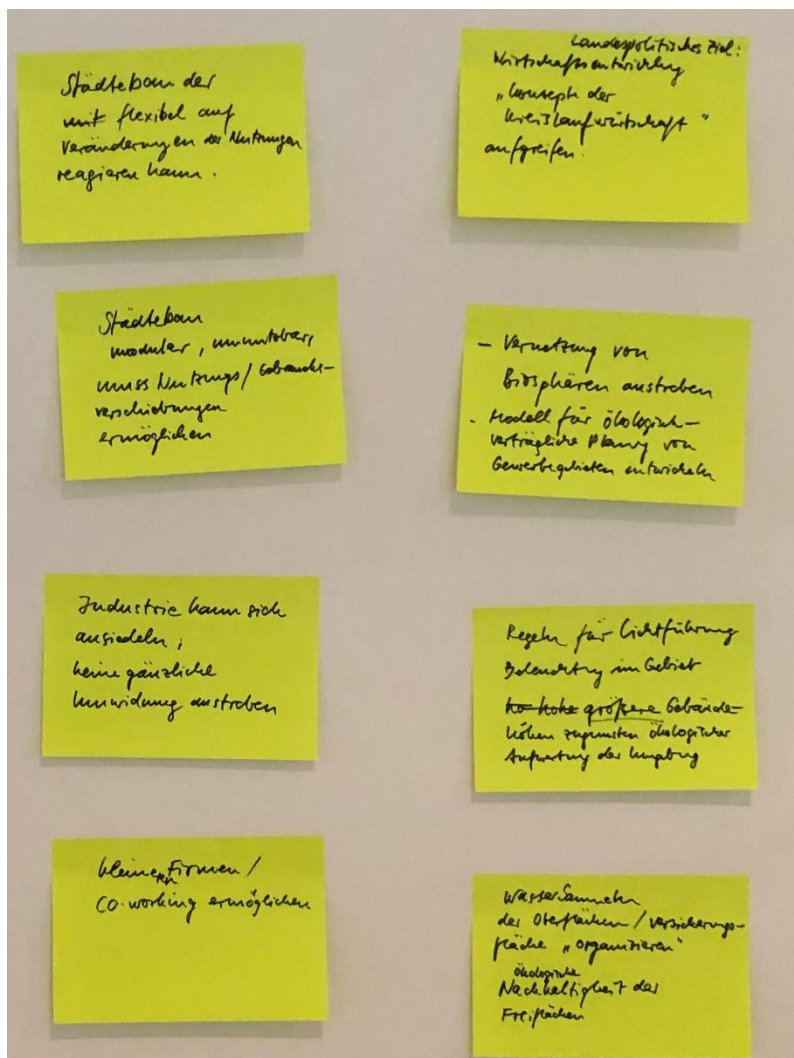 Städtebau der
mit flexibel auf
Veränderungen der Nutzungen
reagieren kann.
Städtebau
modular, umnutzbar,
muss Nutzungs/Gebrauchs-
verschiebungen
ermöglichen
Industrie kann sich
ansiedeln;
keine gänzliche
Umwidmung anstreben
kleineren Firmen/
CO-working ermöglichen
Landespolitisches Ziel:
Wirtschaftsentwicklung
„Konzepte der
Kreislaufwirtschaft"
aufgreifen.
- Vernetzung von
Biosphären anstreben
- Modell für ökologisch-
verträgliche Planung von
Gewerbegebieten entwickeln
Regeln für Lichtführung
Beleuchtung im Gebiet
ho hohe größere Gebäude-
höhen zugunsten ökologischer
Aufwertung der Umgebung
Wasser Sammeln
der Oberflächen/Versickerungs-
fläche „organisieren"
ökologische
Nachhaltigkeit der
Freiflächen